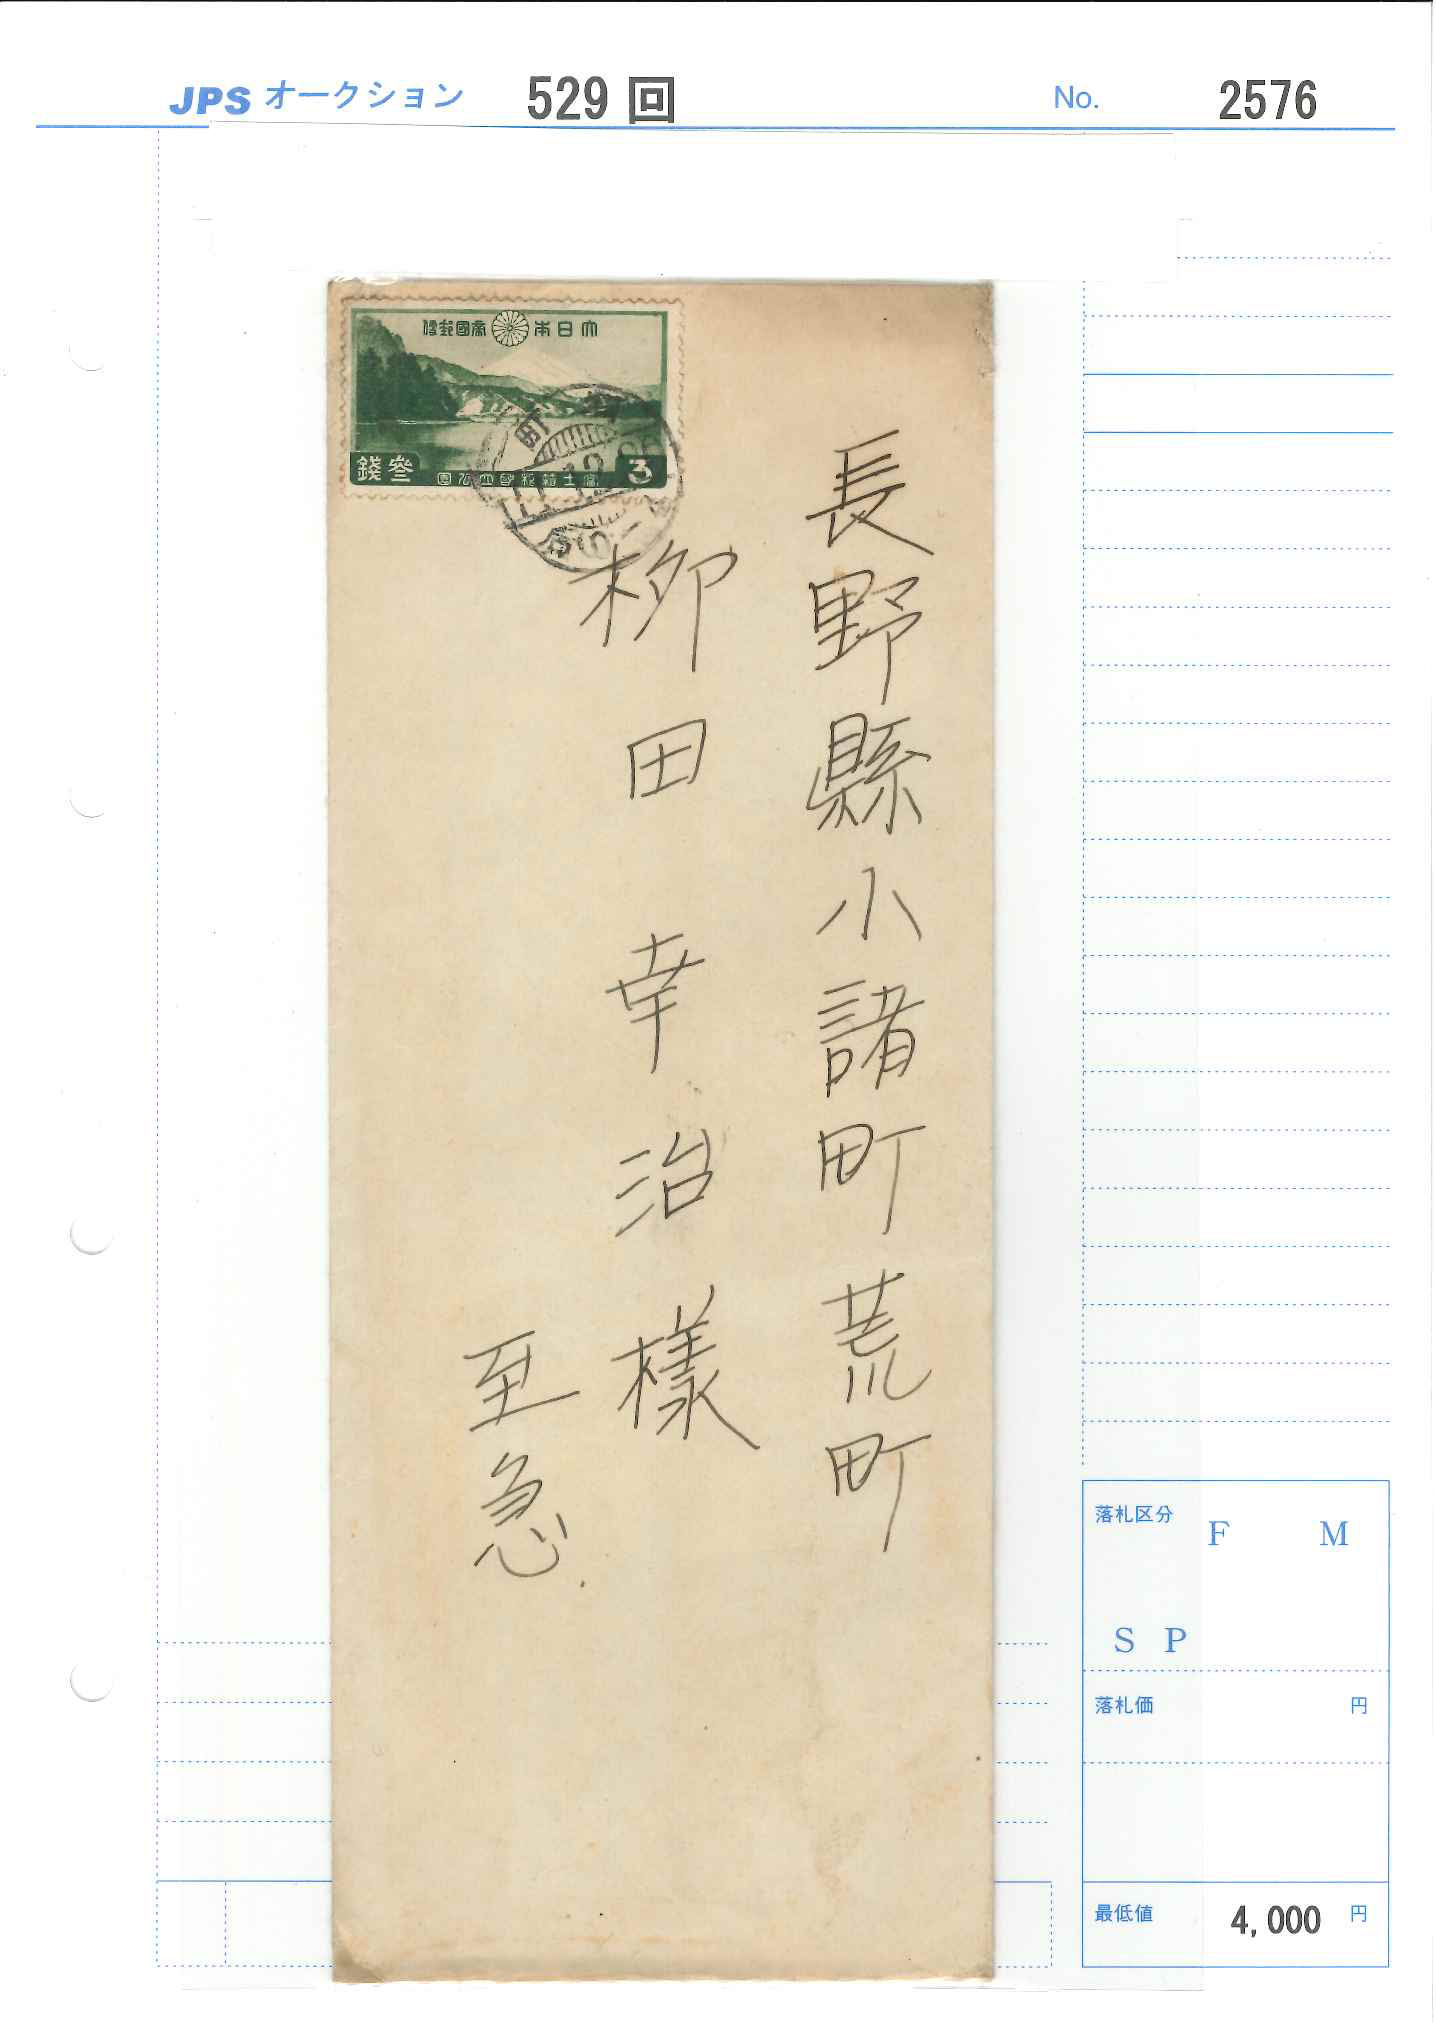 JPS オークション 529 回 No. 2576
大日本 帝國郵便
参錢 富士箱根國立公園 3
長野縣小諸町荒町
柳田幸治様
至急
落札区分 F M
S P
落札価 円
最低値 4,000 円